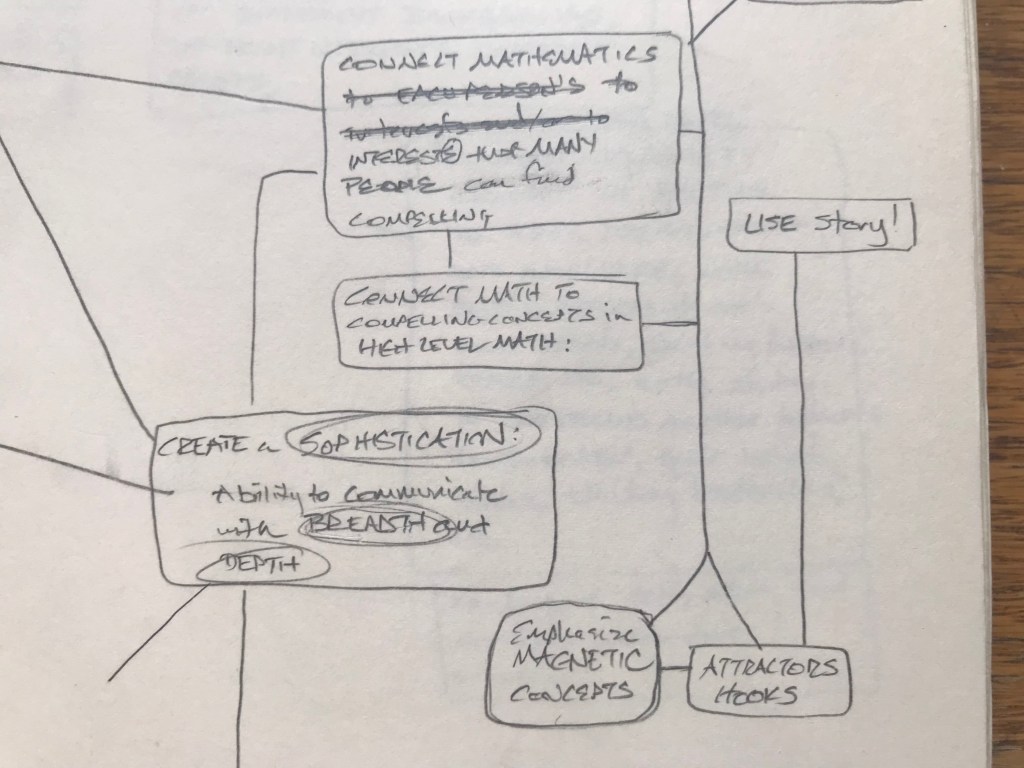 CONNECT MATHEMATICS
to EACH PERSON'S to
interests and/or to
INTERESTS that MANY
PEOPLE can find
COMPELLING
USE Story!
CONNECT MATH TO
COMPELLING CONCEPTS in
HIGH LEVEL MATH:
CREATE a SOPHISTICATION:
Ability to communicate
with BREADTH and
DEPTH
Emphasize
MAGNETIC
CONCEPTS
ATTRACTORS
HOOKS